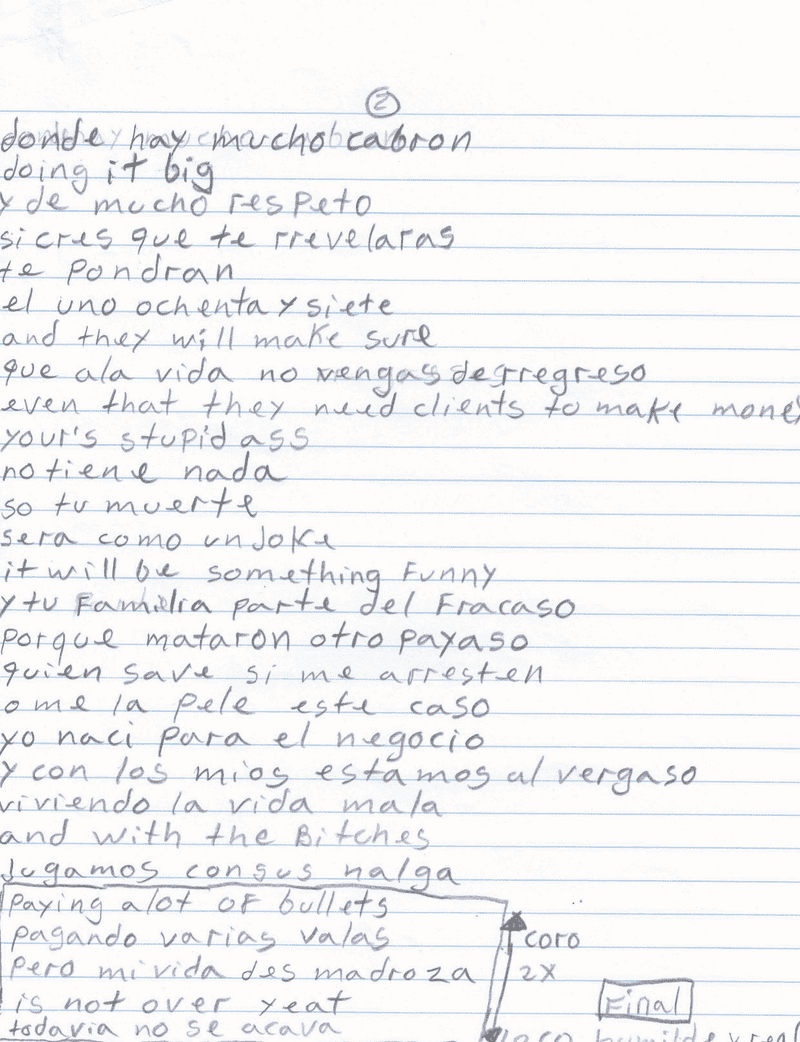 2
donde hay mucho cabron
doing it big
y de mucho respeto
si cres que te rrevelaras
te pondran
el uno ochenta y siete
and they will make sure
que ala vida no vengas de rregreso
even that they need clients to make money
your's stupid ass
no tiene nada
so tu muerte
sera como un Joke
it will be something Funny
y tu Familia parte del Fracaso
porque mataron otro payaso
quien save si me arresten
o me la pele este caso
yo naci para el negocio
y con los mios estamos al vergaso
viviendo la vida mala
and with the Bitches
Jugamos con sus nalga
paying alot of bullets
pagando varias valas
pero mi vida des madroza
is not over yeat
todavia no se acava
coro
2X
Final
loco humilde y